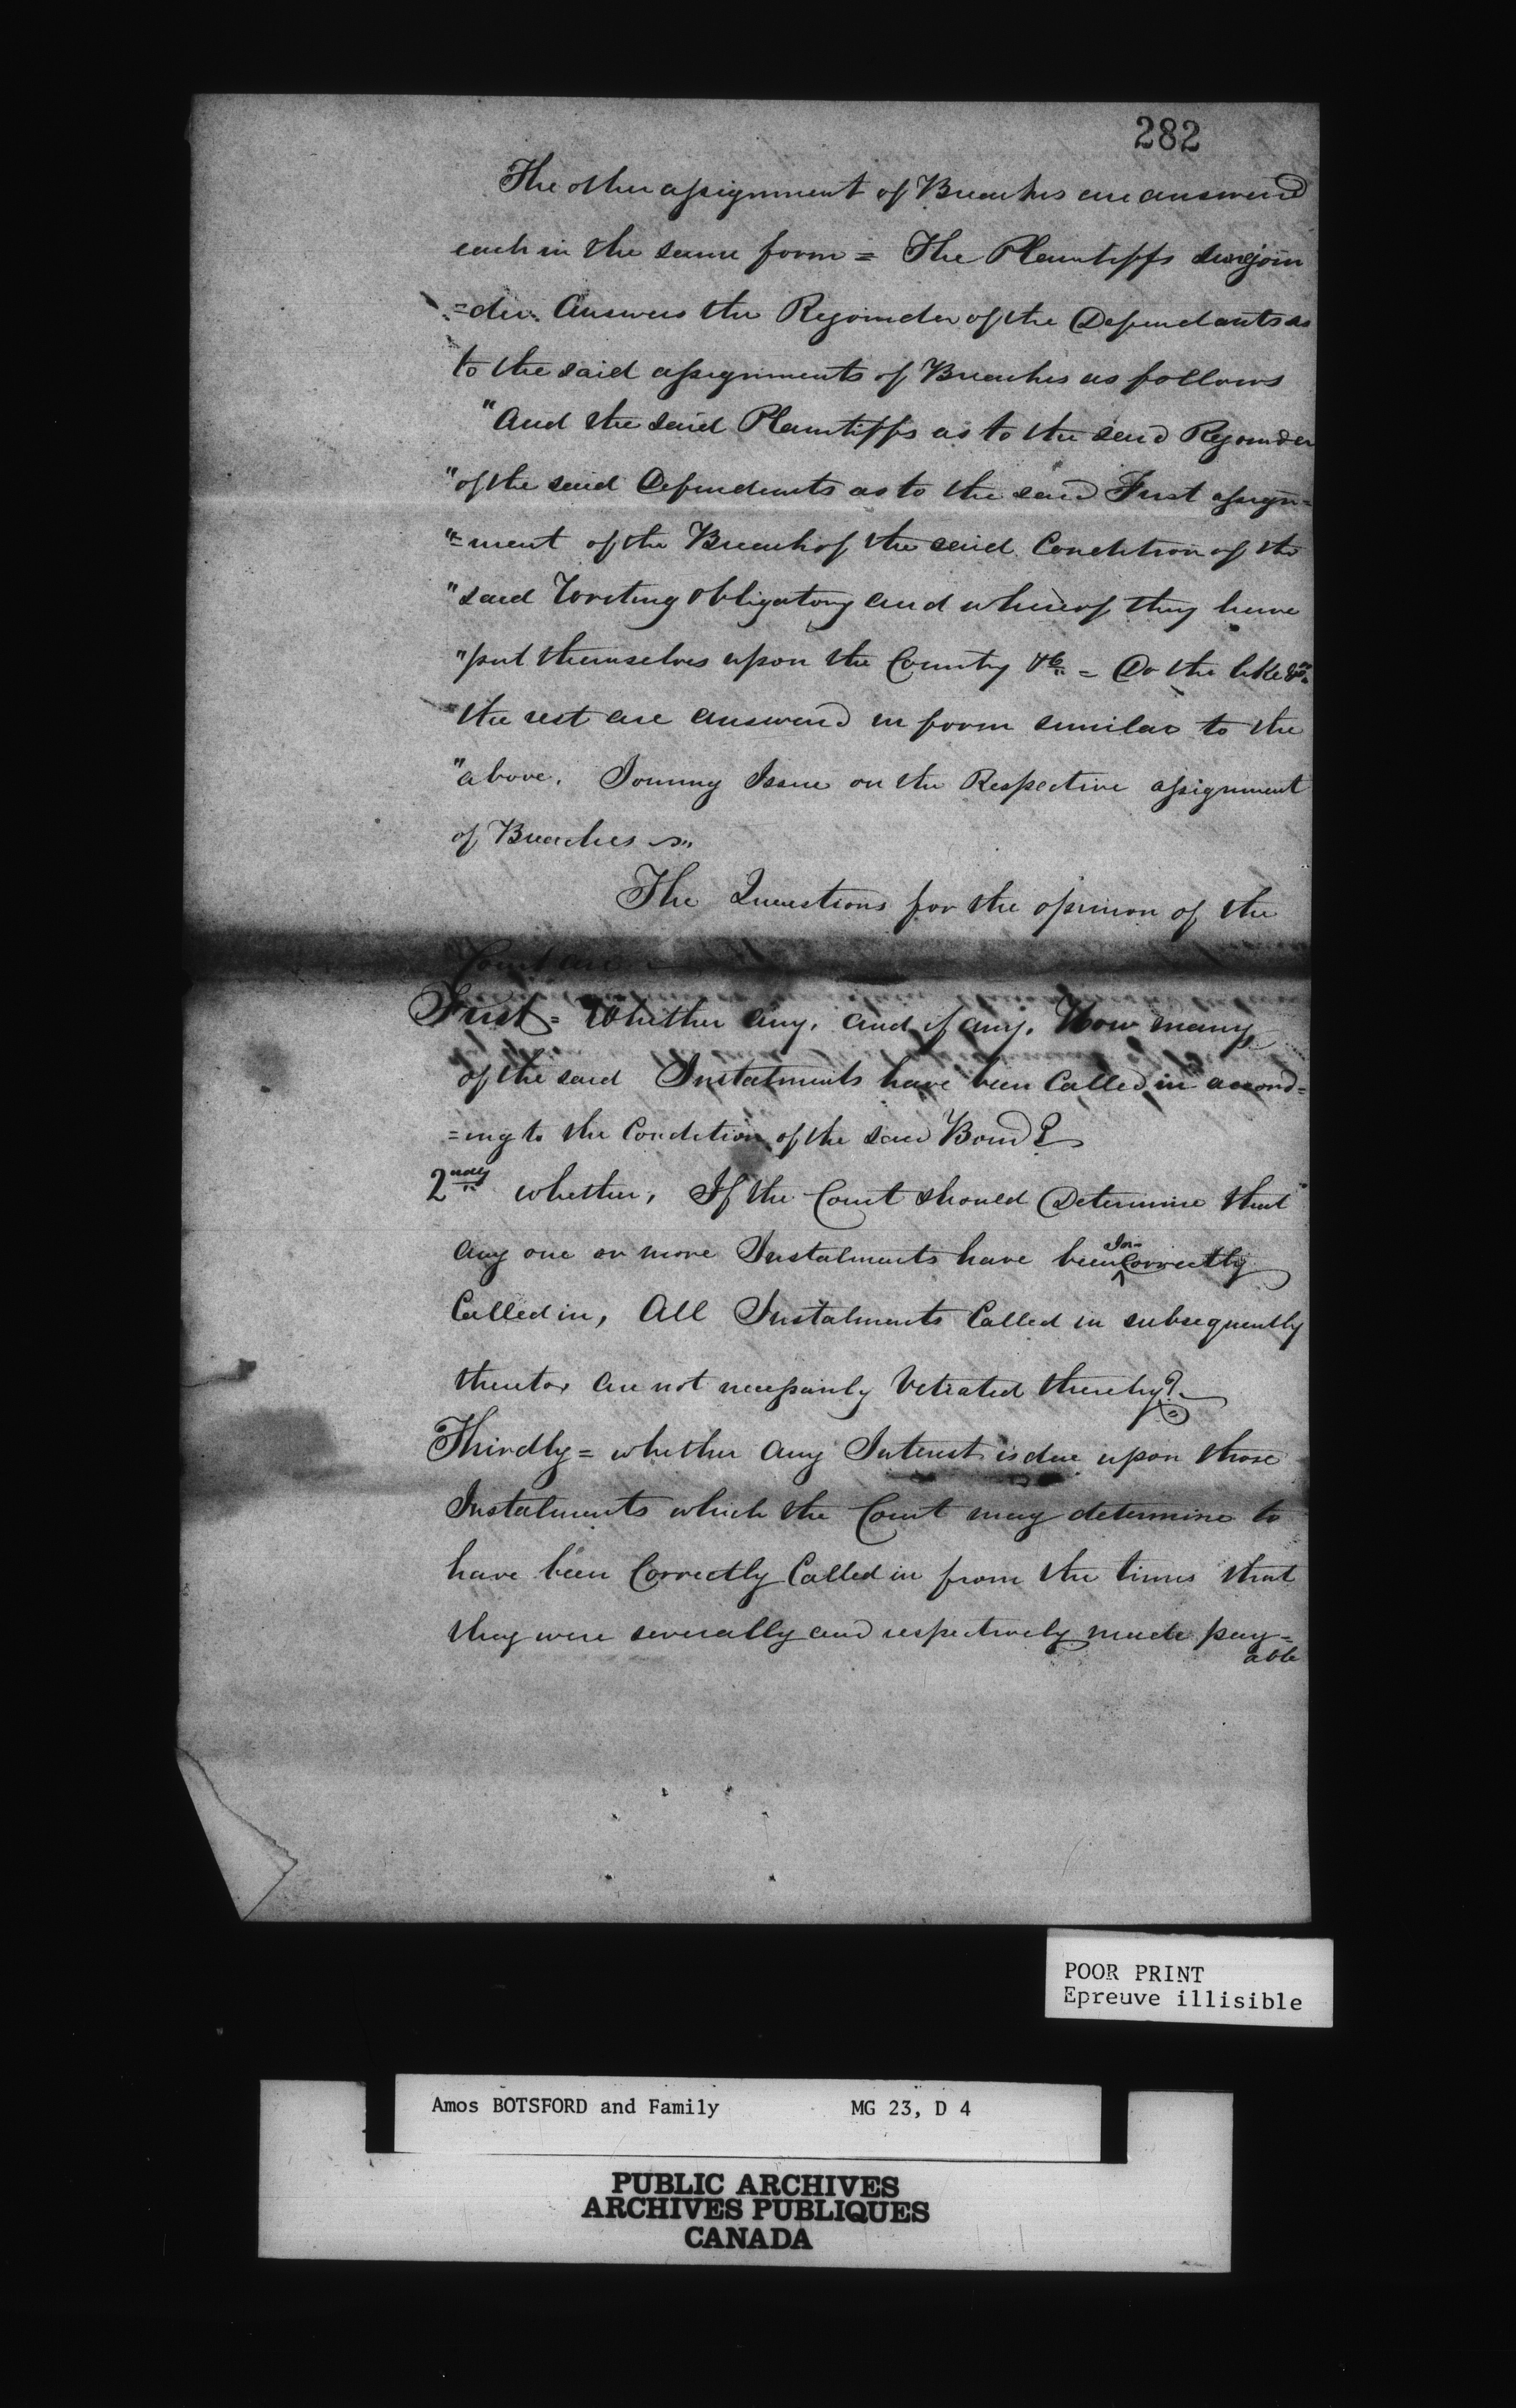 282
The other assignment of Breaches are answered
each in the same form = The Plaintiffs Surrejoin
=der. Answers the Rejoinder of the Defendants as
to the said assignments of Breaches as follows
"And the said Plaintiffs as to the said Rejoinder
"of the said Defendants as to the said First assign=
"=ment of the Breach of the said Condition of the
"said Writing Obligatory and whereof they have
"put themselves upon the Country &c = Do the like &c.
"the rest are answered in form similar to the
"above. Joining Issue on the Respective assignment
of Breaches
The Questions for the opinion of the
Court are
First = Whether any. and if any. How many
of the said Instalments have been Called in accord=
=ing to the Condition of the said Bond?
2ndly whether, If the Court should Determine that
any one or more Instalments have been In-Correctly
Called in, All Instalments Called in subsequently
thereto, are not necessarily Vitiated thereby?
Thirdly = whether any Interest is due upon those
Instalments which the Court may determine to
have been Correctly Called in from the times that
they were severally and respectively made pay=
able
POOR PRINT
Epreuve illisible
Amos BOTSFORD and Family MG 23, D 4
PUBLIC ARCHIVES
ARCHIVES PUBLIQUES
CANADA